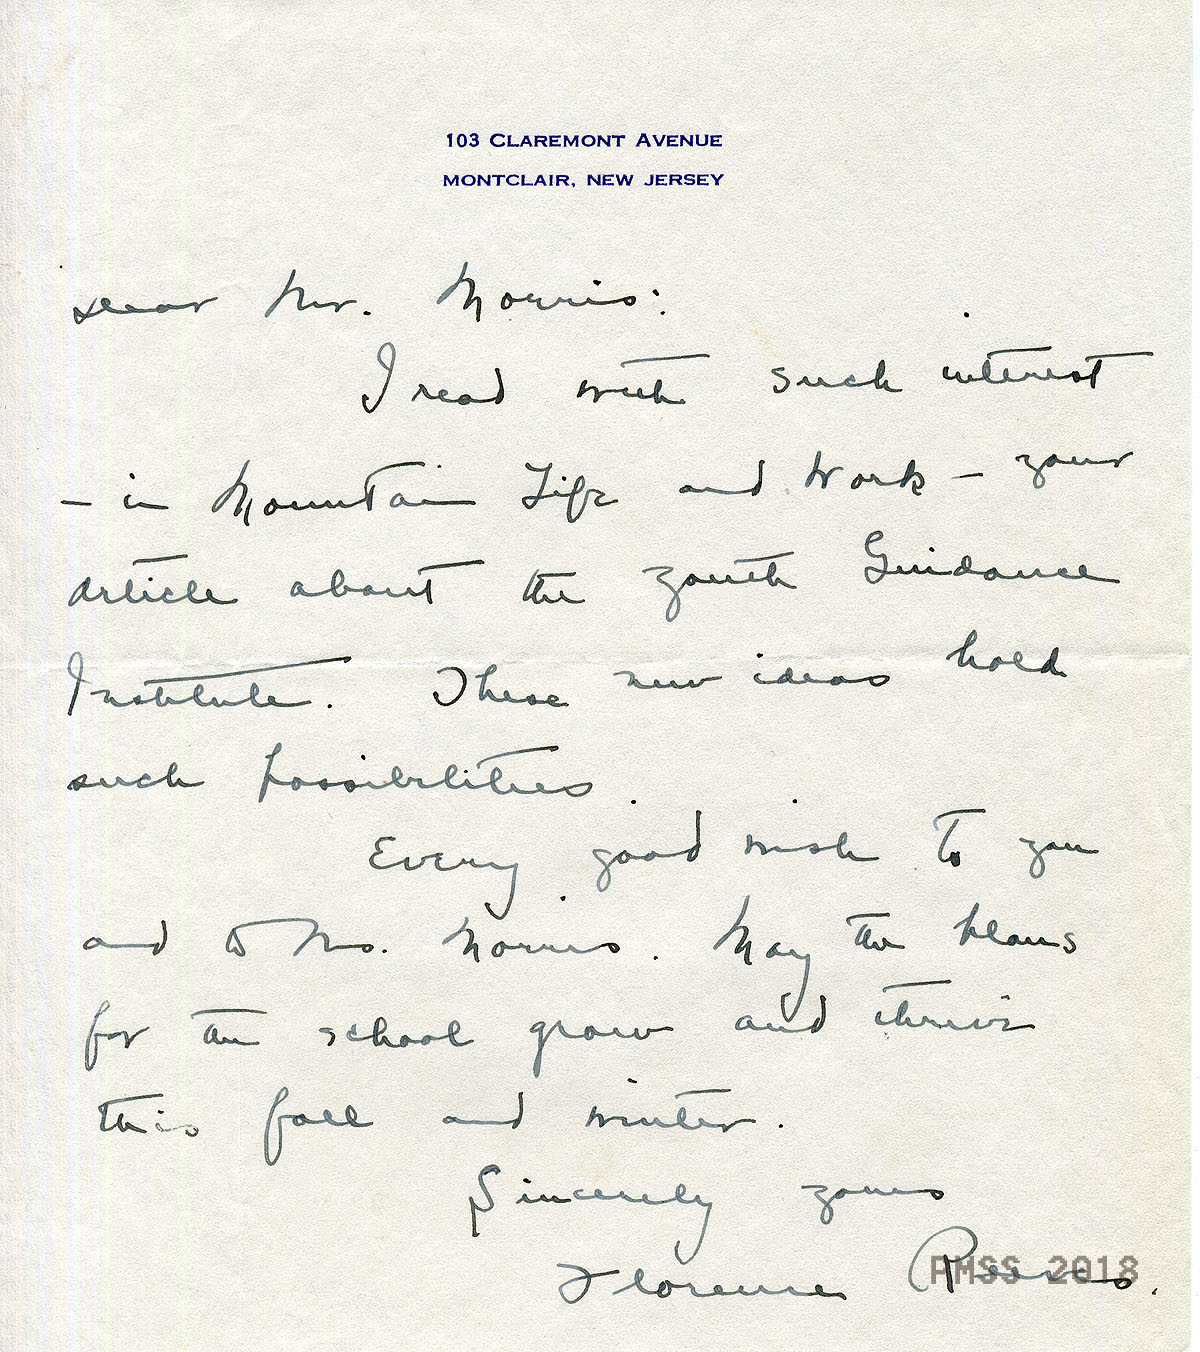 103 CLAREMONT AVENUE
MONTCLAIR, NEW JERSEY
Dear Mr. Morris:
I read with such interest
- in Mountain Life and Work - your
article about the Youth Guidance
Institute. These new ideas hold
such possibilities.
Every good wish to you
and to Mrs. Morris. May the plans
for the school grow and thrive
this fall and winter.
Sincerely yours
Florence Reeves.
PMSS 2018